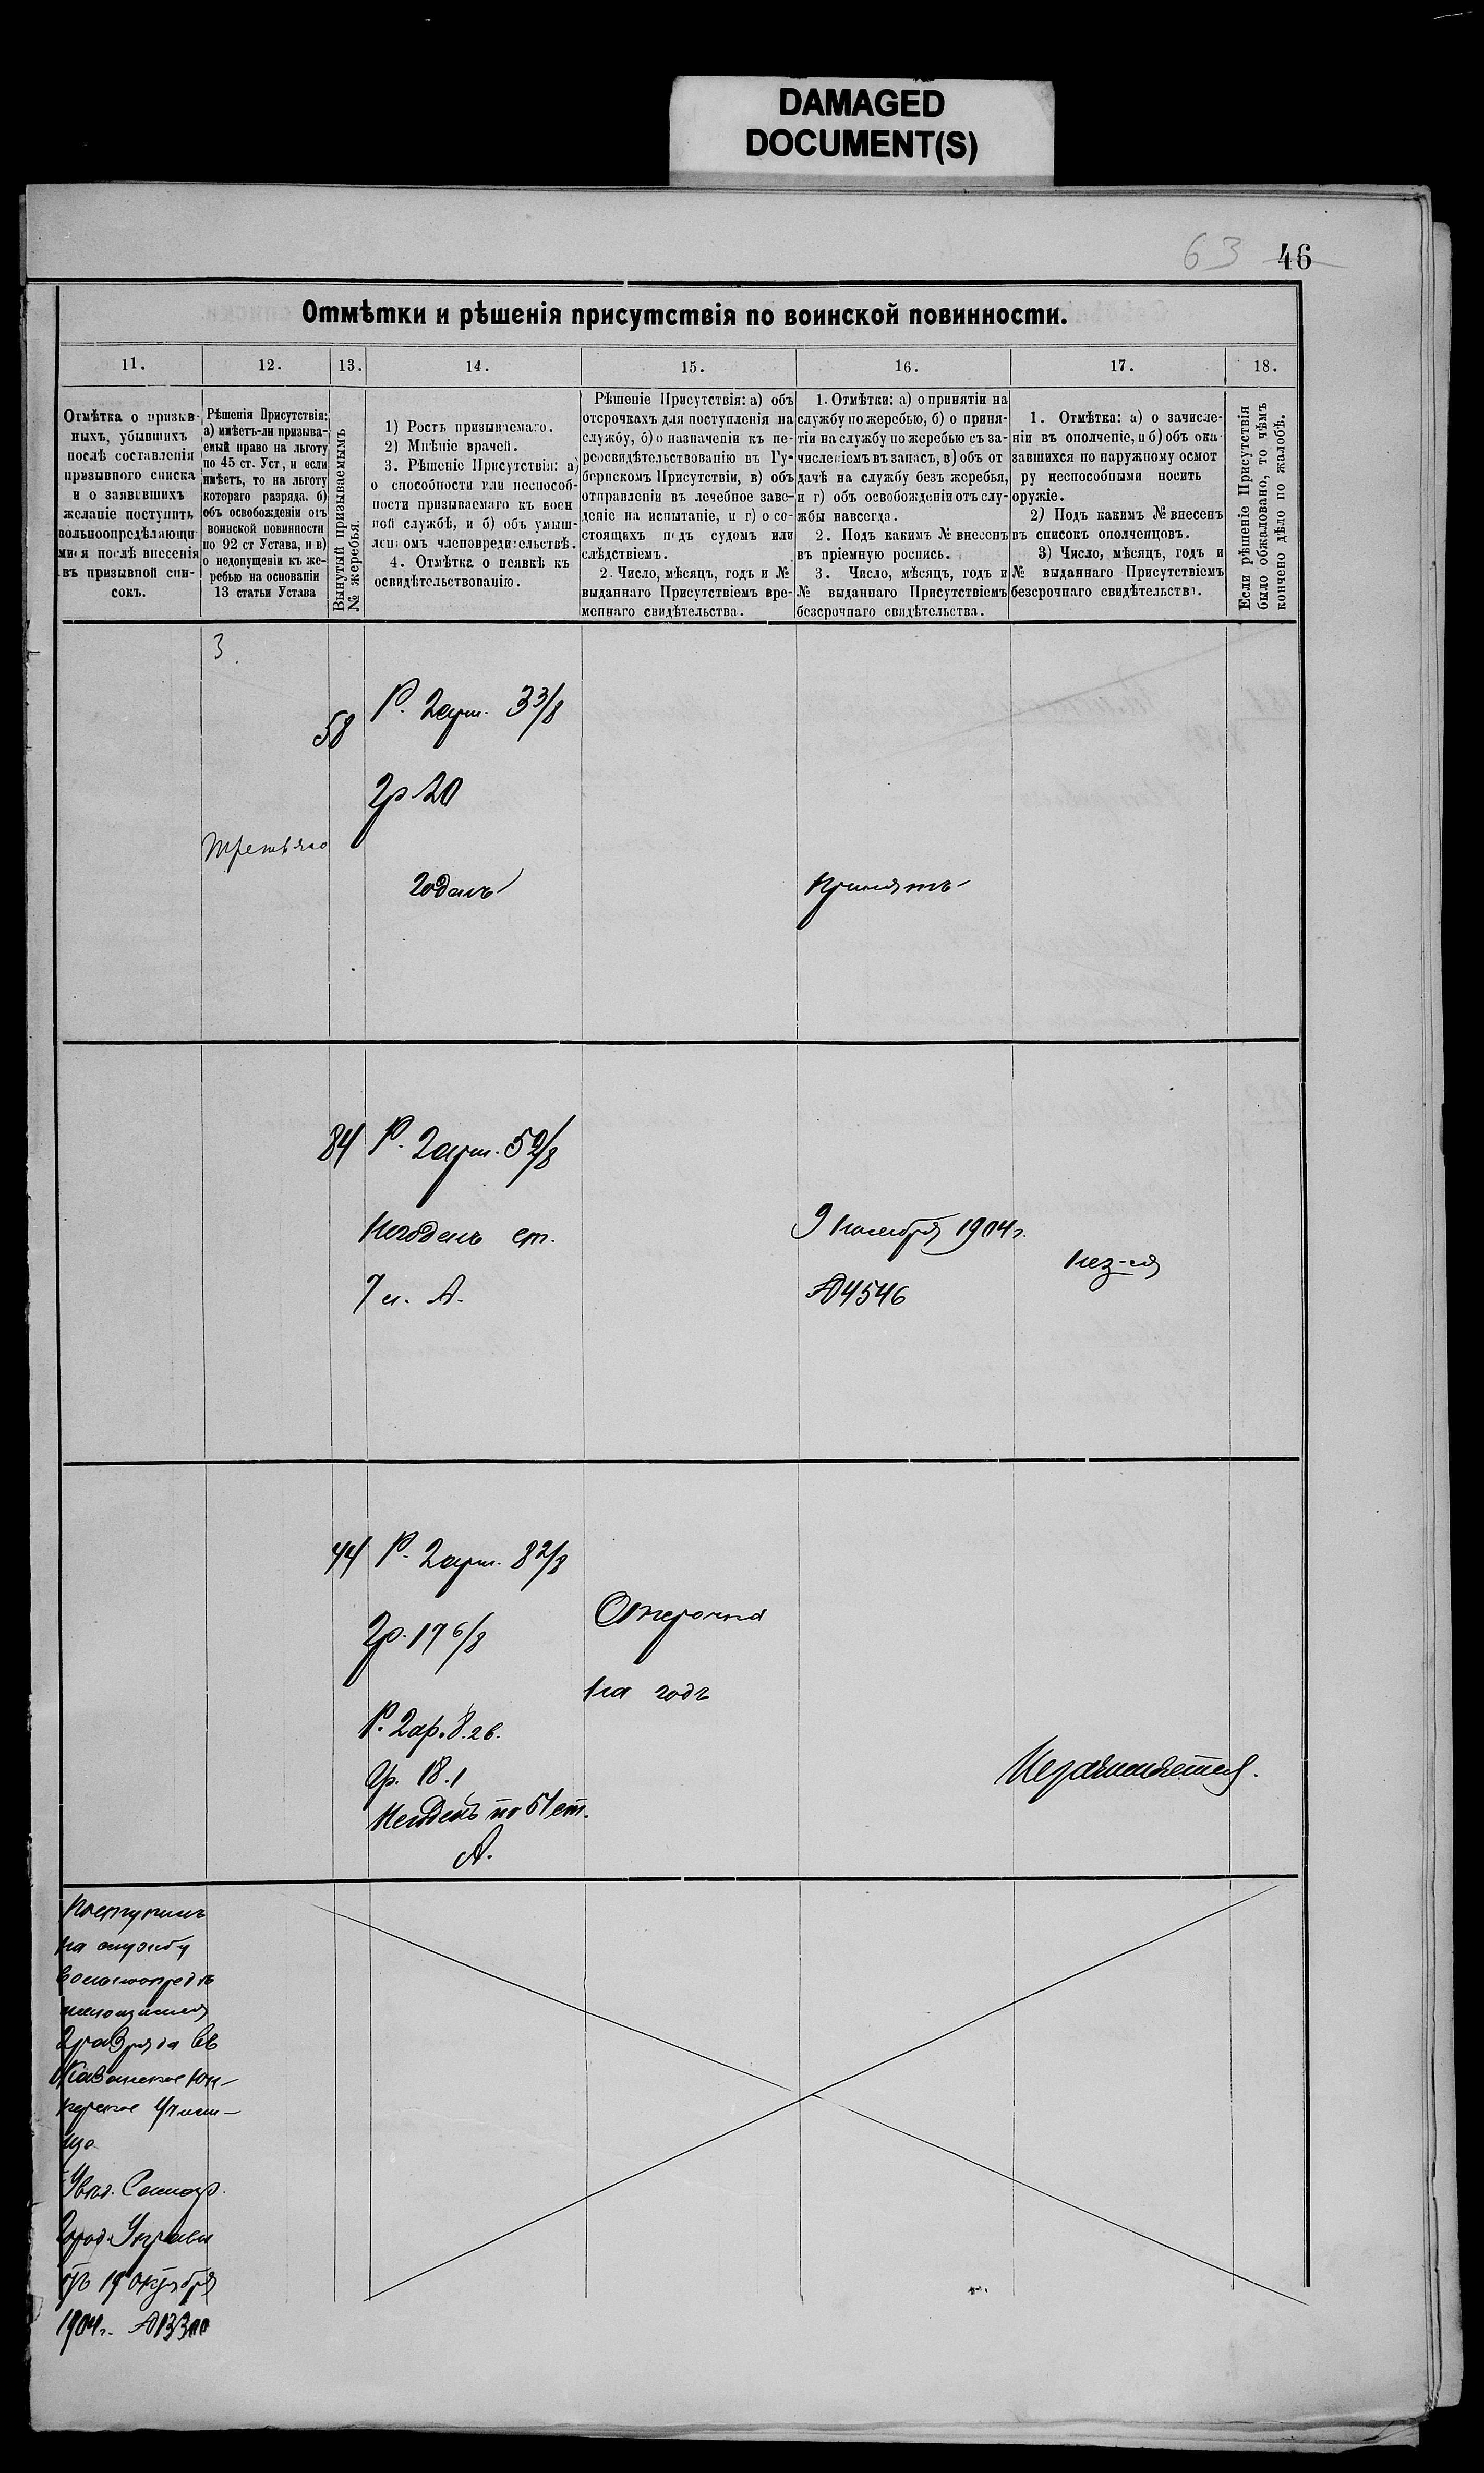 DAMAGED
DOCUMENT(S)
63 46
Отмѣтки и рѣшенія присутствія по воинской повинности.
11.
12.
13.
14.
15.
16.
17.
18.
Отмѣтка о призыв-
ныхъ, убывшихъ
послѣ составленія
призывного списка
и о заявившихъ
желаніе поступить
вольноопредѣляющи
мися послѣ внесенія
въ призывной спи-
сокъ.
Рѣшенія Присутствія:
а) имѣетъ-ли призыва-
емый право на льготу
по 45 ст. Уст, и если
имѣетъ, то на льготу
котораго разряда. б)
объ освобожденіи отъ
воинской повинности
по 92 ст Устава, и в)
о недопущеніи къ же-
ребью на основаніи
13 статьи Устава
Вынутый призываемымъ
№ жеребья.
1) Ростъ призываемаго.
2) Мнѣніе врачей.
3. Рѣшеніе Присутствія: а)
о способности или неспособ-
ности призываемаго къ воен
ной службѣ, и б) объ умыш-
ленномъ членовредительствѣ.
4. Отмѣтка о неявкѣ къ
освидѣтельствованію.
Рѣшеніе Присутствія: а) объ
отсрочкахъ для поступленія на
службу, б) о назначеніи къ пе-
реосвидѣтельствованію въ Гу-
бернскомъ Присутствіи, в) объ
отправленіи въ лечебное заве-
деніе на испытаніе, и г) о со-
стоящахъ подъ судомъ или
слѣдствіемъ.
2. Число, мѣсяцъ, годъ и №
выданнаго Присутствіемъ вре-
меннаго свидѣтельства.
1. Отмѣтки: а) о принятіи на
службу по жеребью, б) о приня-
тіи на службу по жеребью съ за-
численіемъ въ запасъ, в) объ от
дачѣ на службу безъ жеребья,
и г) объ освобожденіи отъ слу-
жбы навсегда.
2. Подъ какимъ № внесенъ
въ пріемную роспись.
3. Число, мѣсяцъ, годъ и
№ выданнаго Присутствіемъ
безсрочнаго свидѣтельства.
1. Отмѣтка: а) о зачисле-
ніи въ ополченіе, и б) объ ока
завшихся по наружному осмот
ру неспособными носить
оружіе.
2) Подъ какимъ № внесенъ
въ списокъ ополченцовъ.
3) Число, мѣсяцъ, годъ и
№ выданнаго Присутствіемъ
безсрочнаго свидѣтельства.
Если рѣшеніе Присутствія
было обжаловано, то чѣмъ
кончено дѣло по жалобѣ.
3
третьяго
58
Р. 2арш. 3 3/8
Гр 20
годенъ
принятъ
84
Р. 2арш. 5 2/8
Негоденъ ст.
7 л. А.
9 Ноября 1904г.
№4546
нез-ся
44
Р. 2арш. 8 2/8
Гр. 17 6/8
Р. 2ар. 8.2в.
Гр. 18.1
Негоденъ по 51 ст.
А.
Отсрочка
на годъ
Незачисляется.
Поступилъ
на службу
вольноопредѣ
ляющимся
2 разряда въ
Казанское Юн-
керское Учили-
ще
Увѣд. Самар.
Город. Управы
отъ 19 октября
1904г.